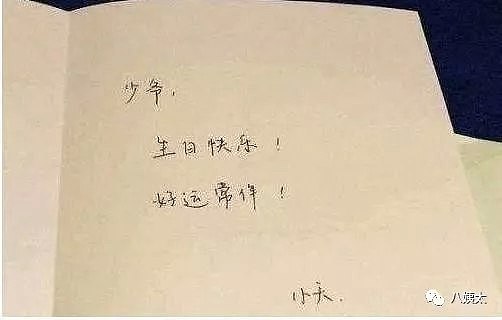 少爷，
生日快乐！
好运常伴！
小天.
八姨太